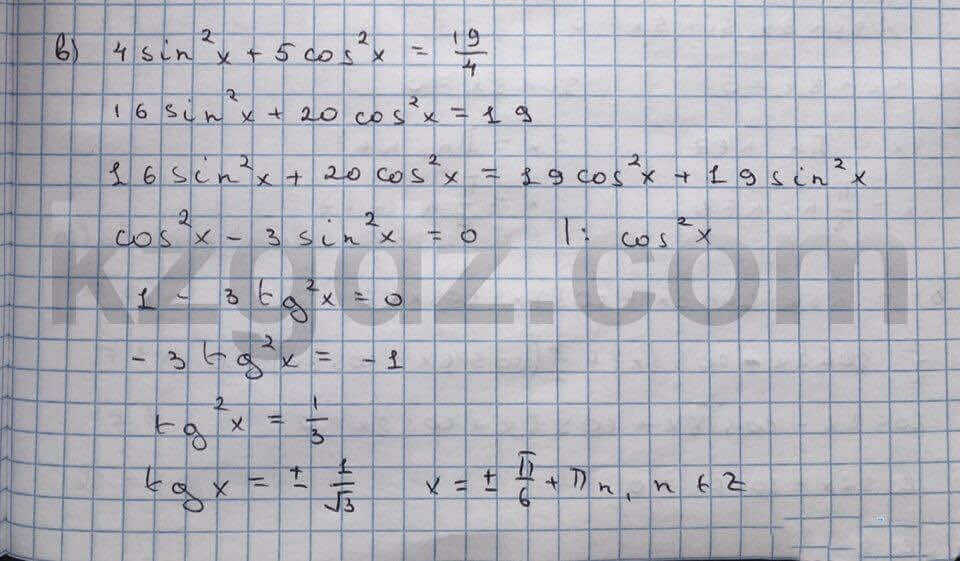 в) 4 sin²x + 5 cos²x = 19/4
16 sin²x + 20 cos²x = 19
16 sin²x + 20 cos²x = 19 cos²x + 19 sin²x
cos²x - 3 sin²x = 0 |: cos²x
1 - 3 tg²x = 0
- 3 tg²x = -1
tg²x = 1/3
tg x = ± 1/√3 x = ± π/6 + πn, n ∈ Z
kzgdz.com